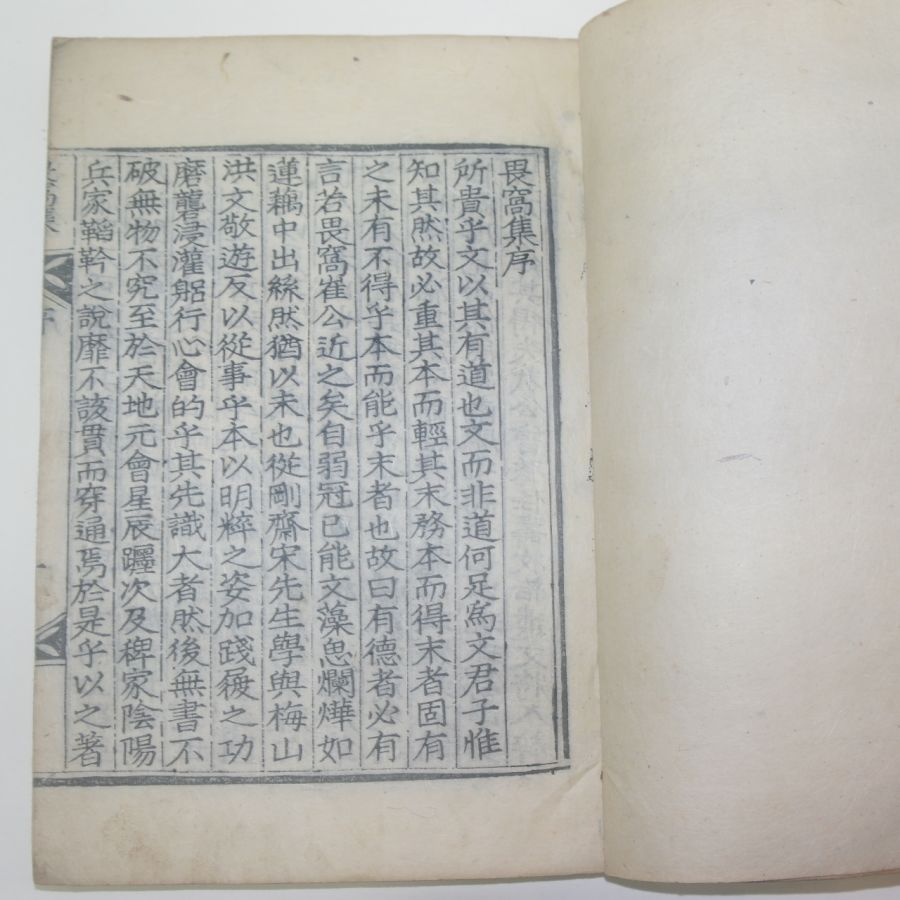 畏窩集序
所貴乎文以其有道也文而非道何足爲文君子惟
知其然故必重其本而輕其末務本而得末者固有
之未有不得乎本而能乎末者也故曰有德者必有
言若畏窩崔公近之矣自弱冠已能文藻思爛燁如
蓮藕中出絲然猶以未也從剛齋宋先生學與梅山
洪文敬遊反以從事乎本以明粹之姿加踐履之功
磨礱浸灌躬行心會的乎其先識大者然後無書不
破無物不究至於天地元會星辰躔次及稗家陰陽
兵家韜鈐之說靡不該貫而穿通焉於是乎以之著
序